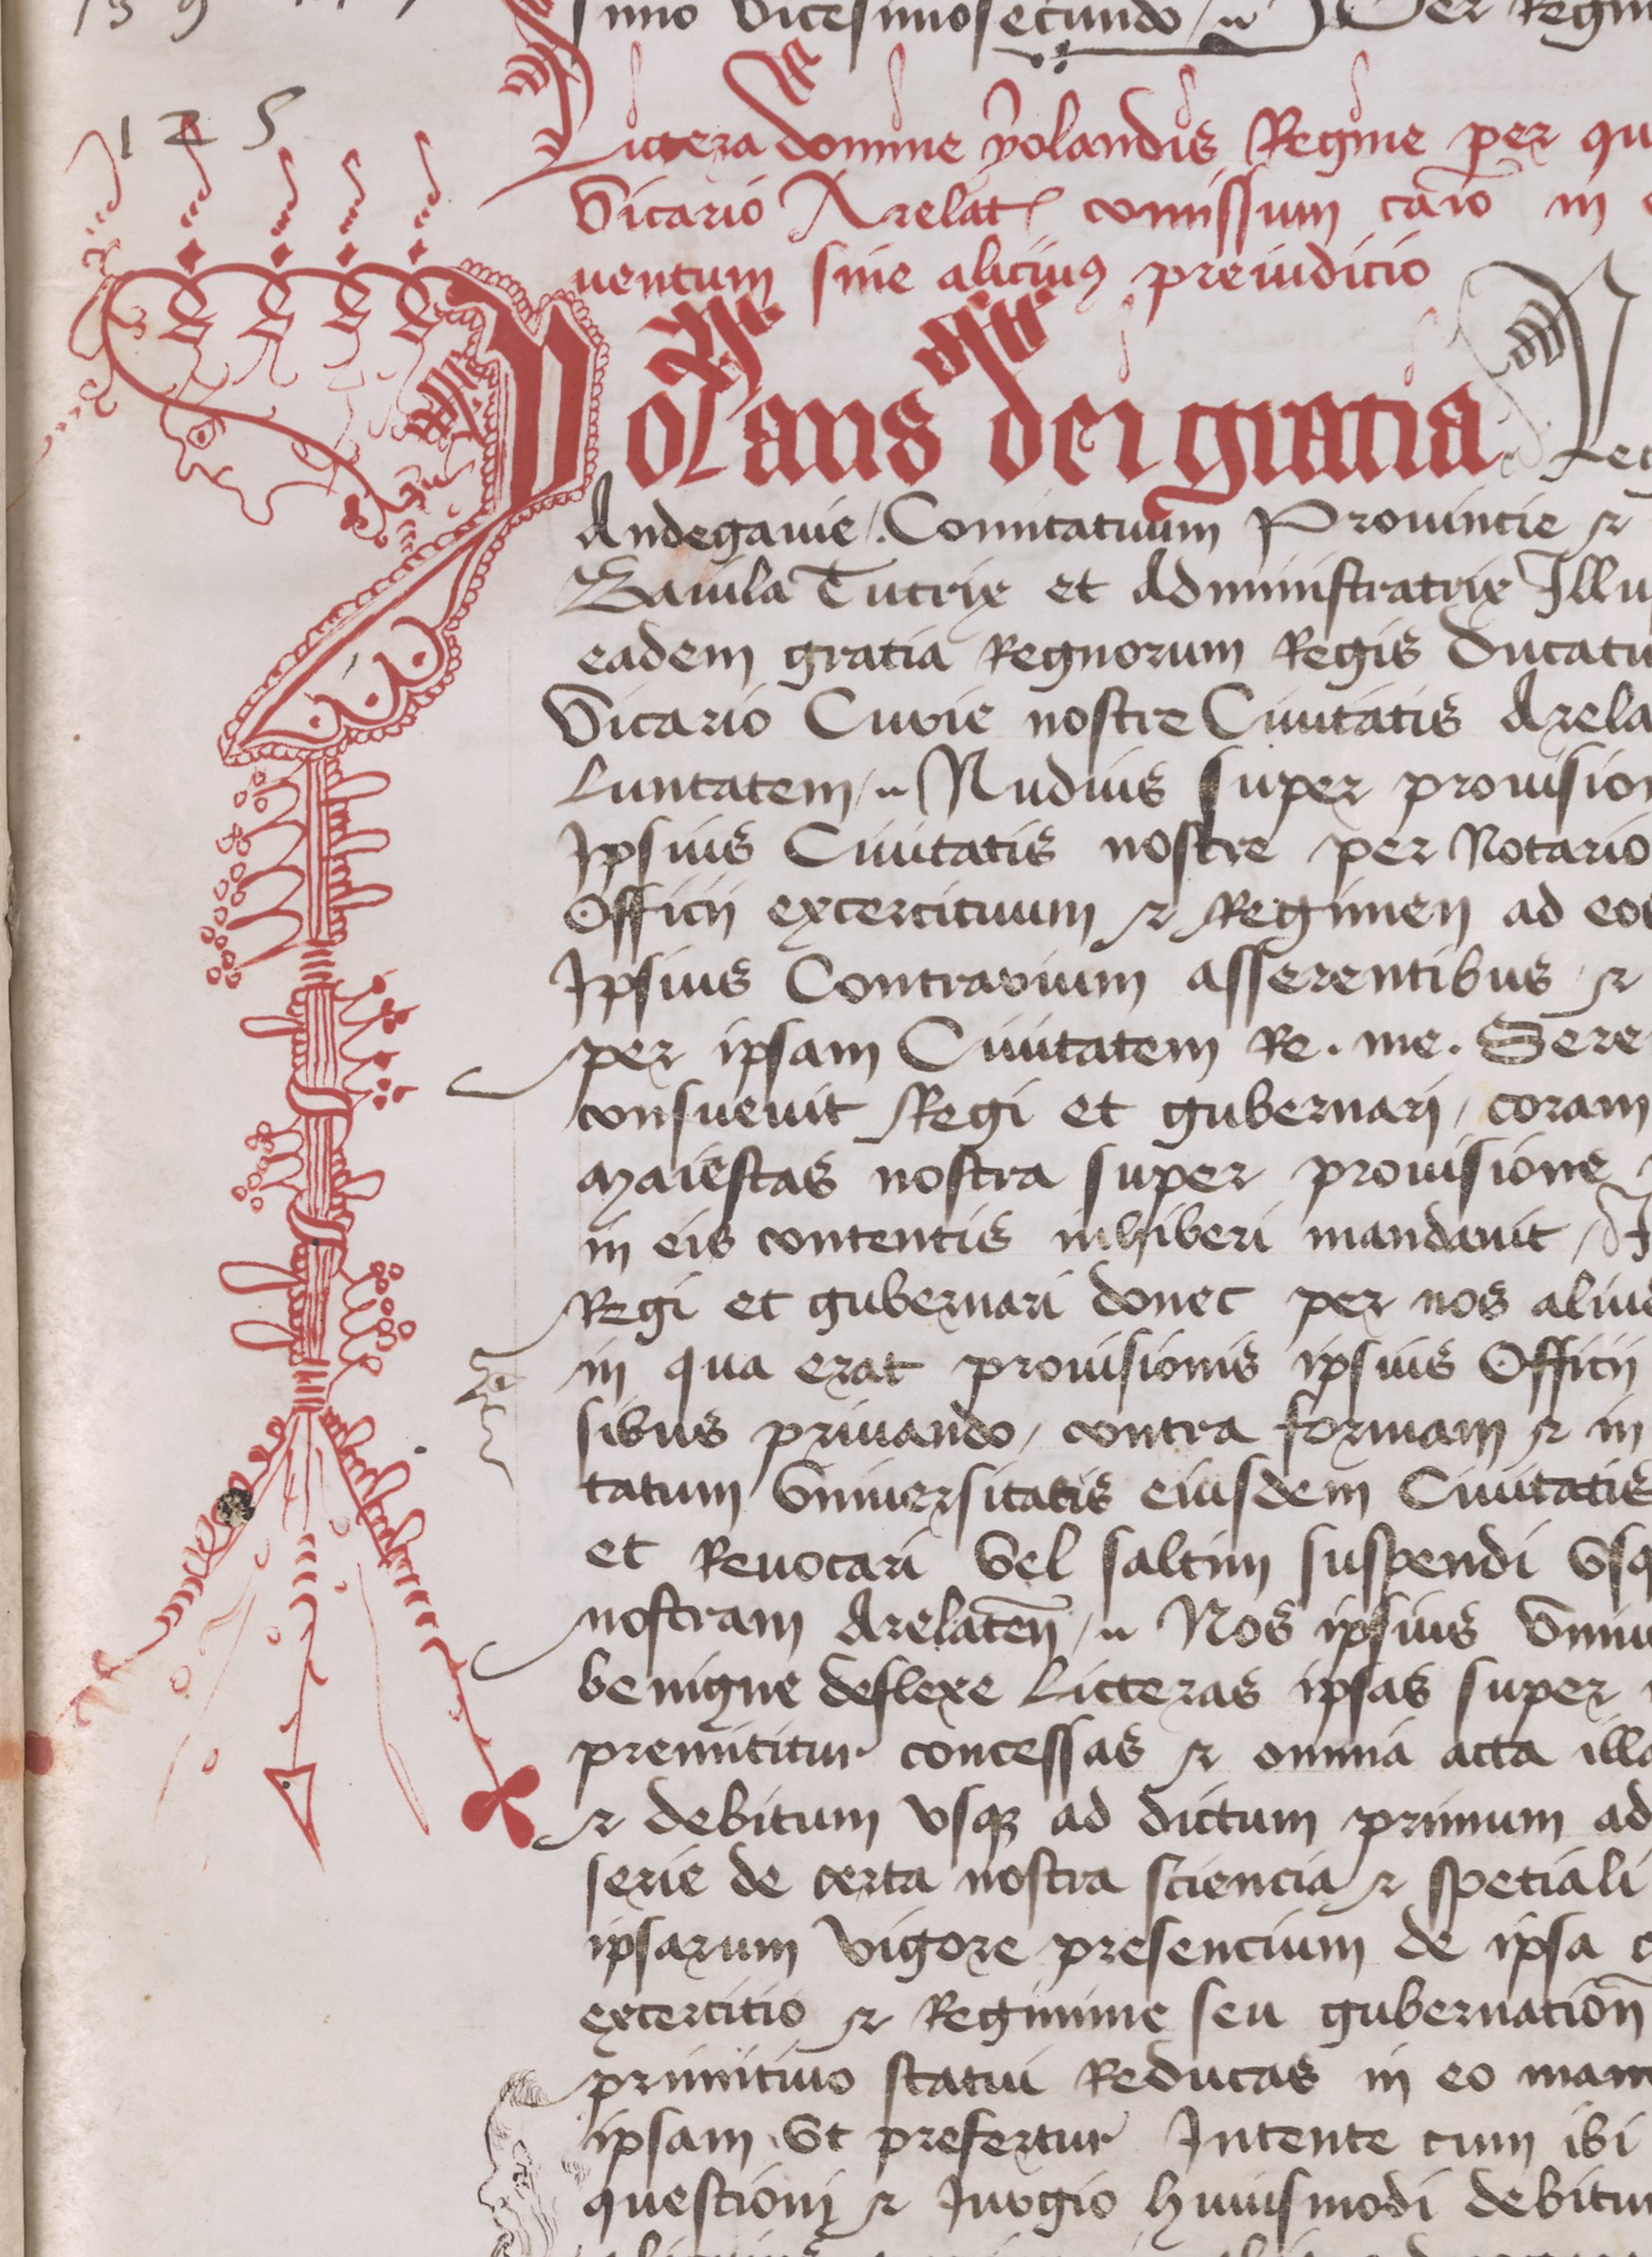 125
simo vicesimosecundo Per Regin
Littera domine yolandis Regine per qu
Vicario Arelat comissum in
uentum sine alicuius preiudicio
Yolans dei gratia Reg
Andegauie Comitatuum Prouincie et
Baiula Tutrix et Administratrix Illu
eadem gratia Regnorum Regis Ducatu
Vicario Curie nostre Ciuitatis Arela
luntatem Nudius super prouision
Ipsius Ciuitatis nostre per Notario
Officii excercituum et Regimen ad eo
Ipsius Contrarium asserentibus et
per ipsam Ciuitatem Re. me. Sere
consueuit Regi et gubernari / coram
Maiestas nostra super prouisione
in eis contentis inhiberi mandauit
Regi et gubernari donec per nos aliud
in qua erat prouisionis ipsius Officii
sibus priuando / contra formam et in
tatum Vniuersitatis eiusdem Ciuitatis
et Reuocari Vel saltim suspendi Vsq
nostram Arelaten̄ Nos ipsius Vniu
benigne deflexe Litteras ipsas super
premittitur concessas et omnia acta illa
et debitum vsque ad dictum primum ad
serie de certa nostra sciencia et spetiali
ipsarum vigore presencium de ipsa
excercitio et Regimine seu gubernation̄
primitiuo statui Reducas in eo mam
ipsam Vt prefertur Intente cum ibi
questioni et Iurgio huiusmodi debitum